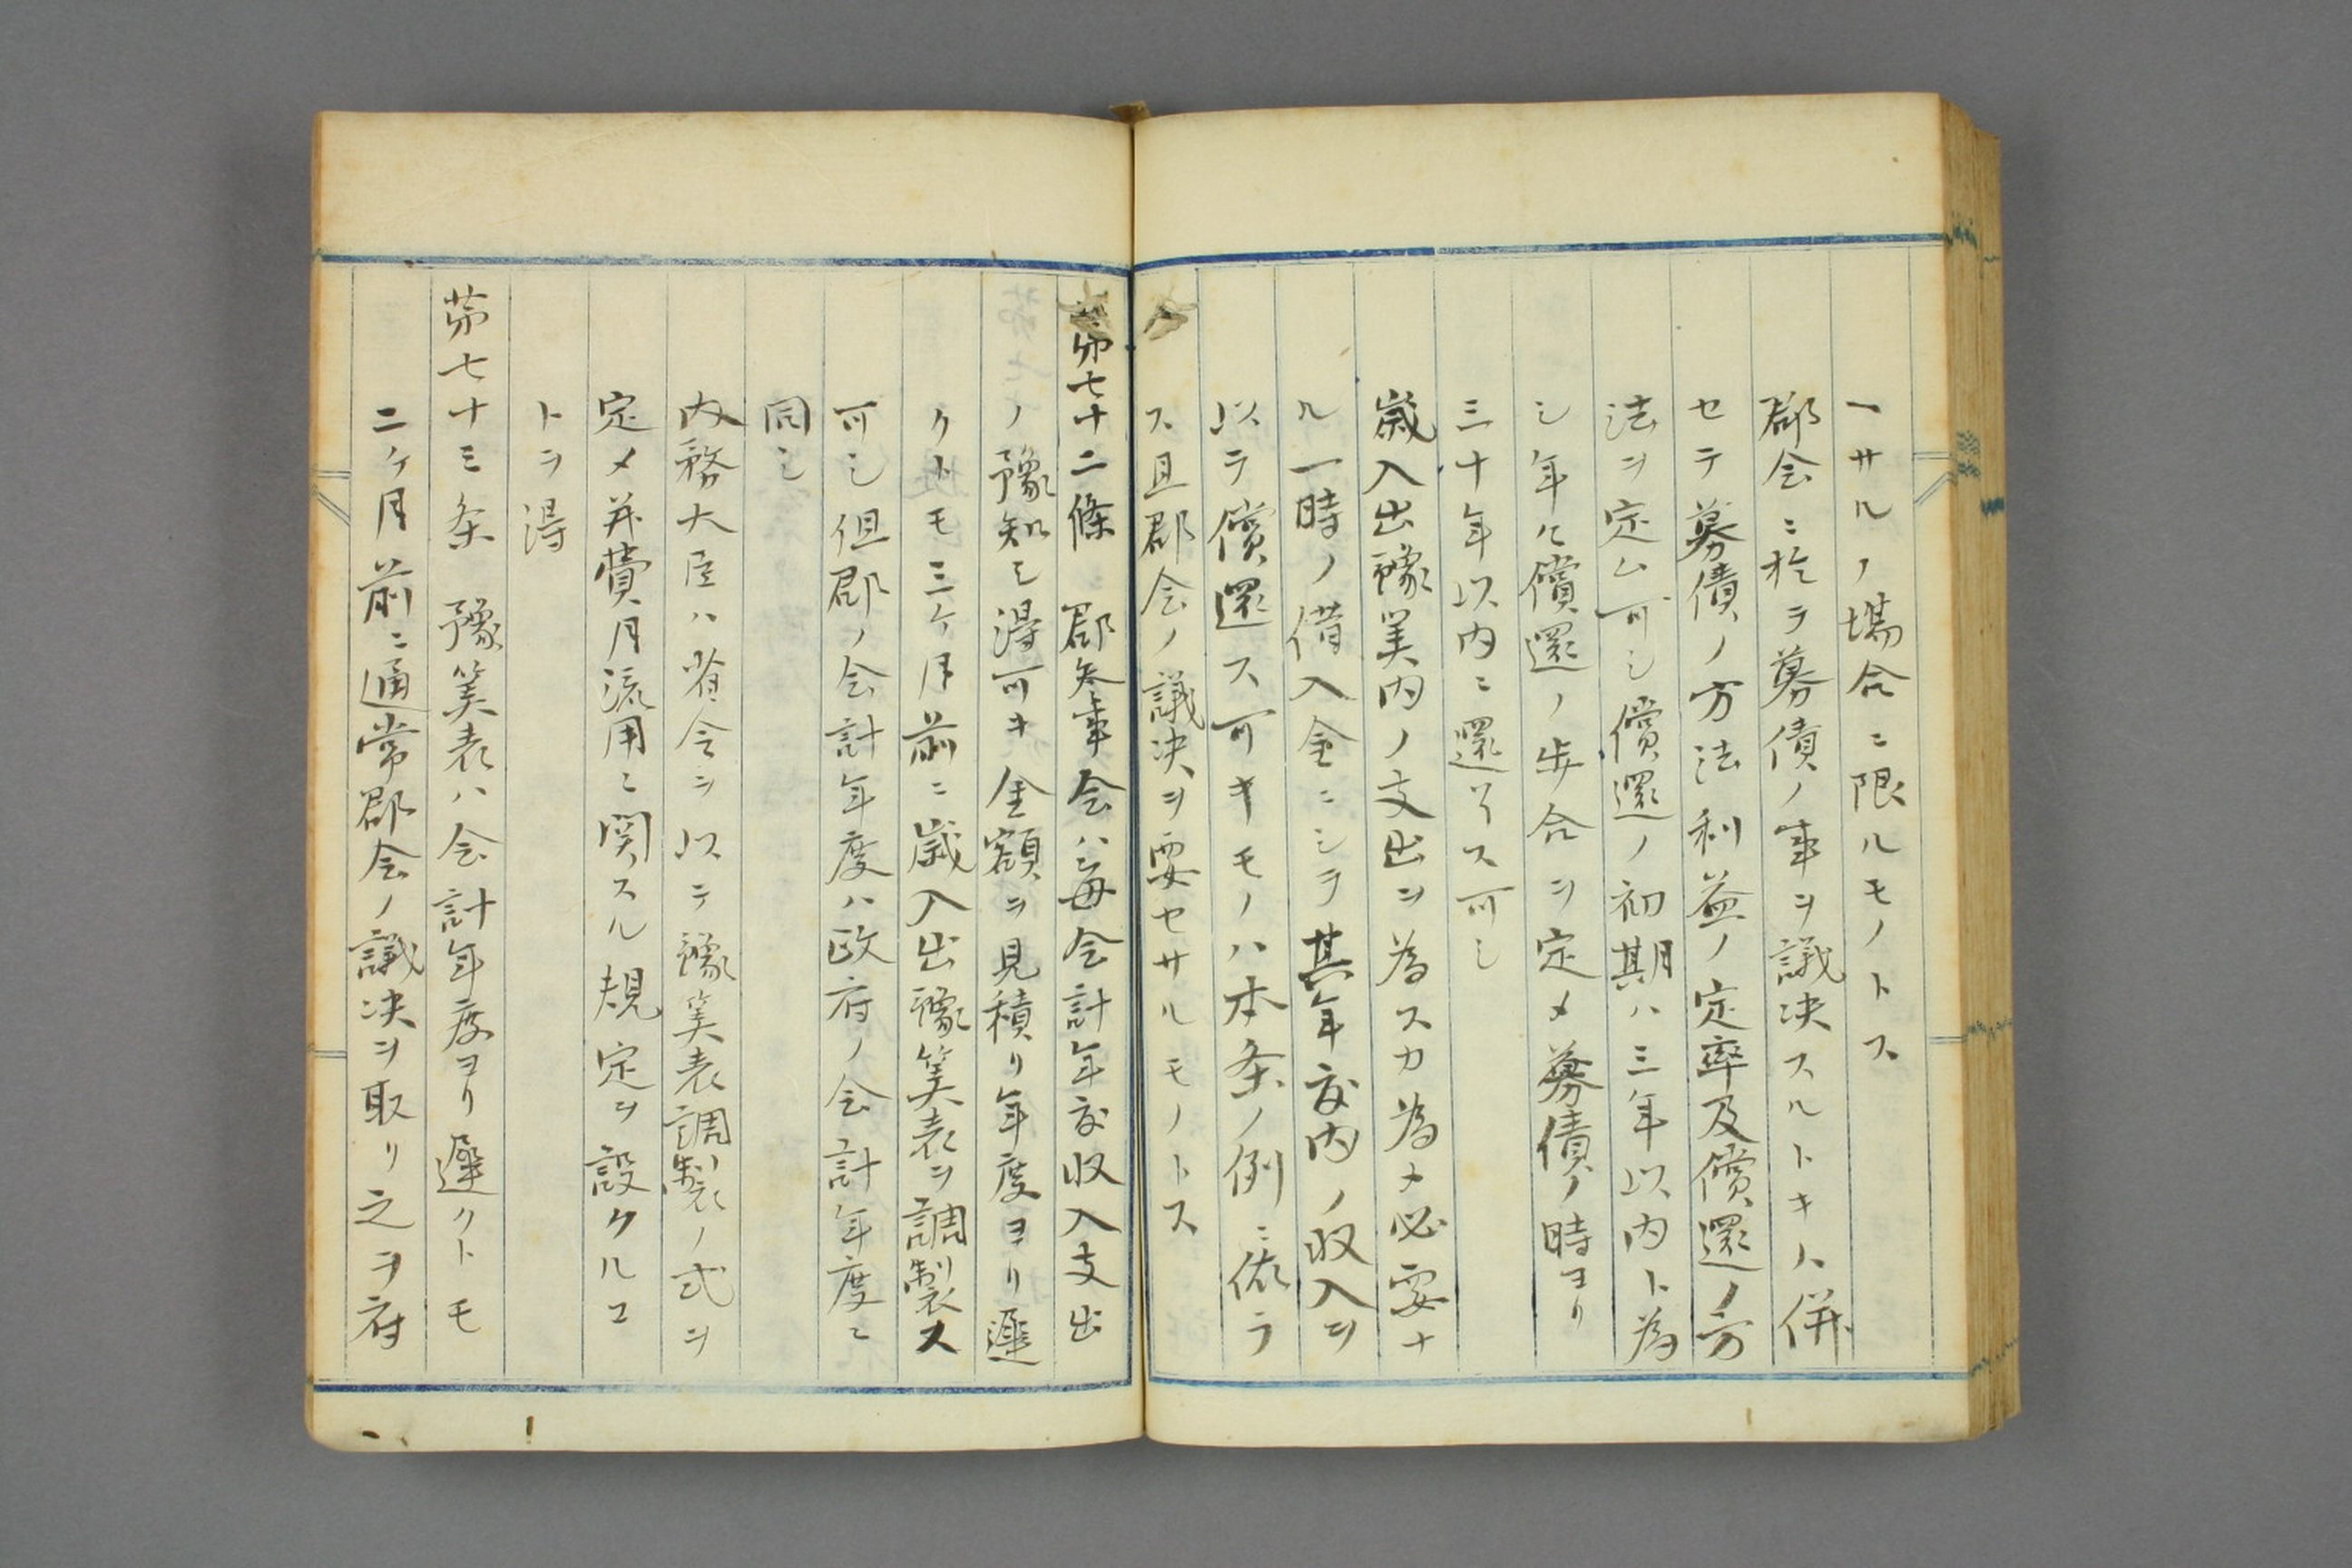 一サルノ場合ニ限ルモノトス
郡会ニ於テ募債ノ事ヲ議决スルトキハ併
セテ募債ノ方法利益ノ定率及償還ノ方
法ヲ定ム可シ償還ノ初期ハ三年以内ト為
シ年々償還ノ歩合ヲ定メ募債ノ時ヨリ
三十年以内ニ還了ス可シ
歳入出豫算内ノ支出ヲ為スカ為メ必要ナ
ル一時ノ借入金ニシテ其年度内ノ収入ヲ
以テ償還ス可キモノハ本条ノ例ニ依ラ
ス且郡会ノ議决ヲ要セサルモノトス
第七十二條 郡参事会ハ毎会計年度収入支出
ノ豫知シ得可キ金額ヲ見積リ年度ヨリ遅
クトモ三ケ月前ニ歳入出豫算表ヲ調製ス
可シ但郡ノ会計年度ハ政府ノ会計年度ニ
同シ
内務大臣ハ省令ヲ以テ豫算表調製ノ式ヲ
定メ并費用流用ニ関スル規定ヲ設クルコ
トヲ得
第七十三条 豫算表ハ会計年度ヨリ遅クトモ
二ケ月前ニ通常郡会ノ議决ヲ取リ之ヲ府